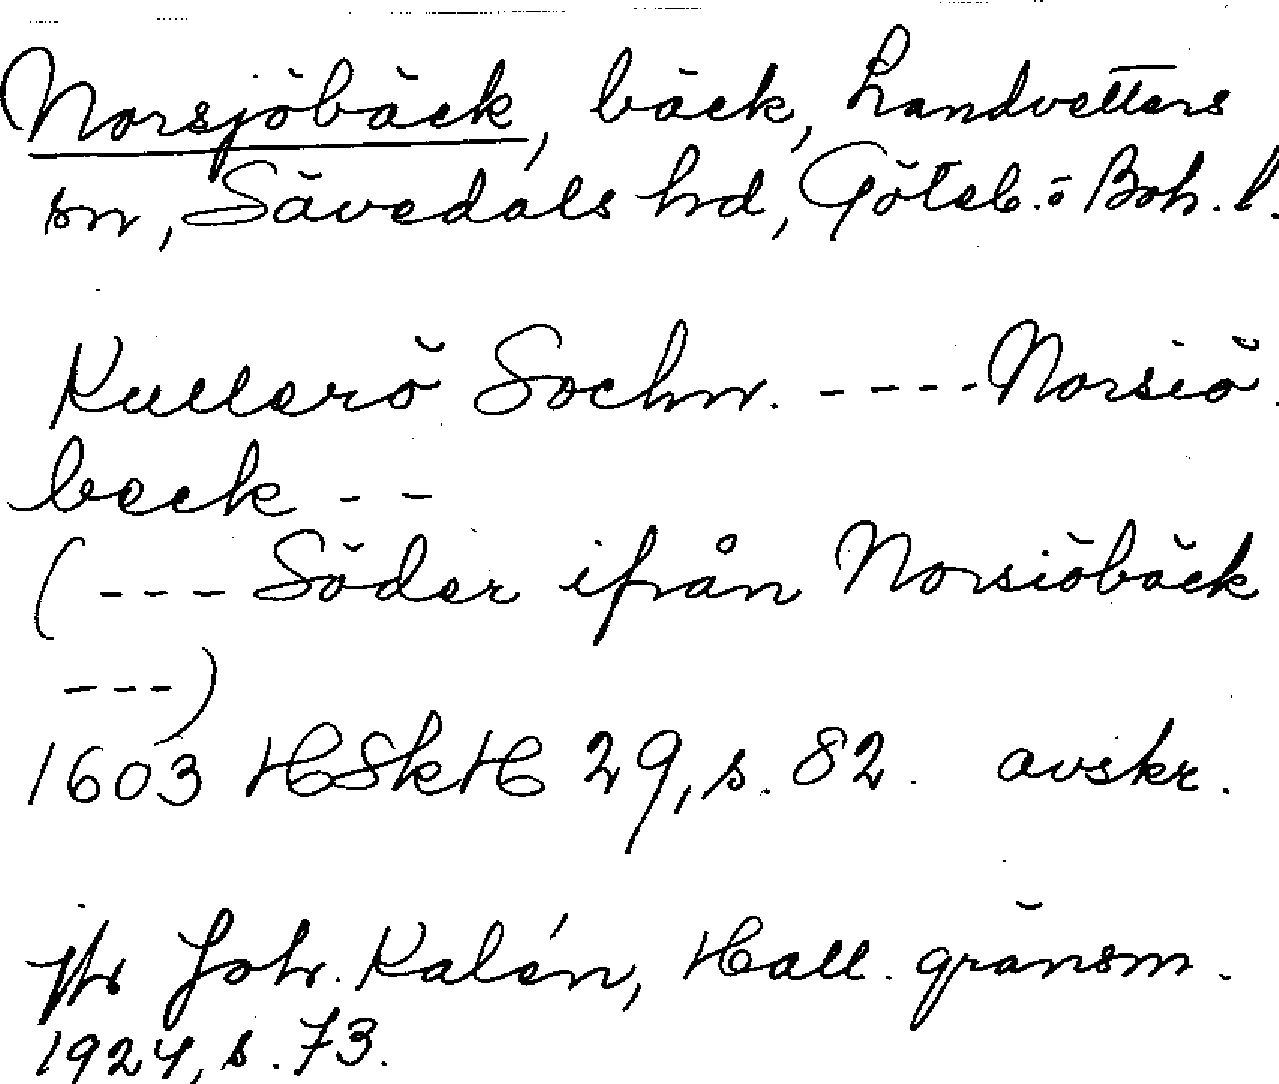 Norsjöbäck, bäck, Landvetters
sn, Sävedals hd, Göteb. o Boh. l.
Kullerö Sochn. ---- Norsiö
beck --
(--- Söder ifrån Norsiöbäck
---)
1603 HSkH 29, s. 82. avskr.
jfr Joh. Kalén, Hall. gränsm.
1924, s. 73.